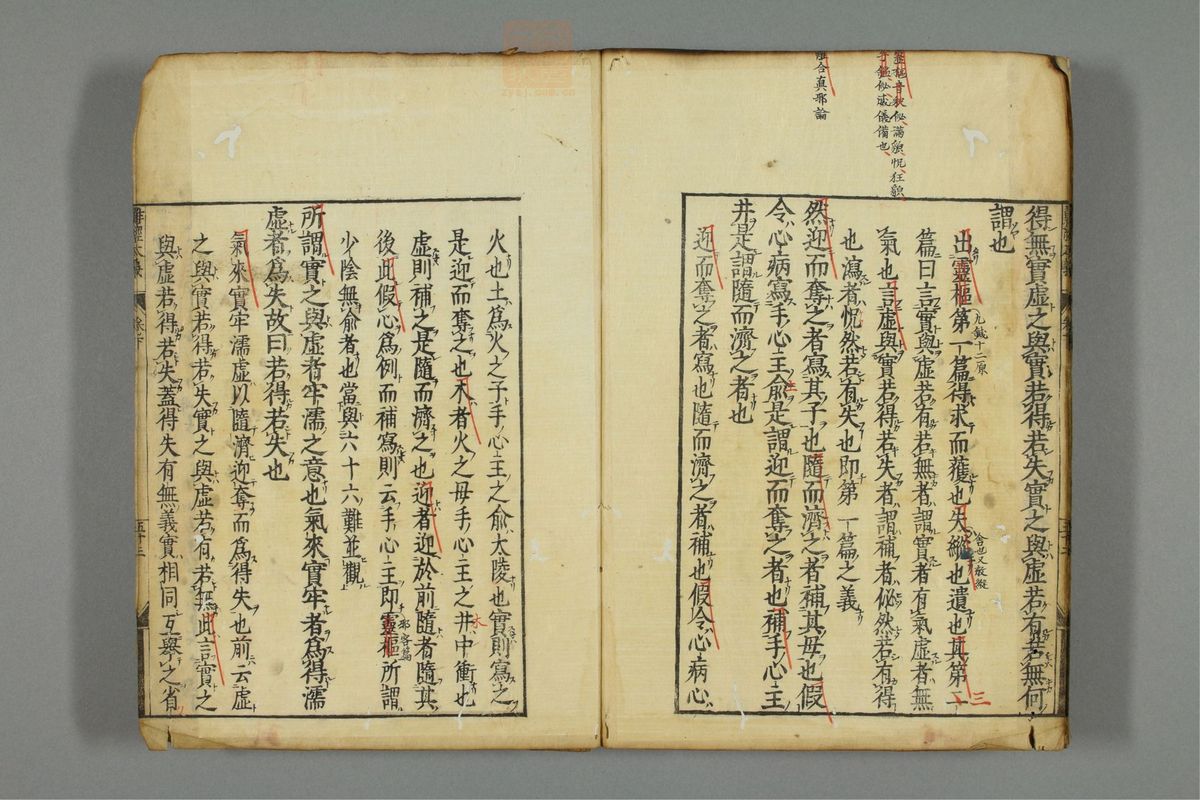 靈樞音教佖滿皃怳狂皃
佖威儀備也
離合真邪論
得無實虛之與實若得若失實之與虛若有若無何
謂也
出靈樞第一篇得求而獲也失縱也遺也其第二
九鍼十二原
舍也又放縱
三
篇曰言實與虛若有若無者謂實者有氣虛者無
氣也言虛與實若得若失者謂補者佖然若有得
也瀉者怳然若有失也即第一篇之義
然迎而奪之者寫其子也隨而濟之者補其母也假
令心病寫手心主俞是謂迎而奪之者也補手心主
井是謂隨而濟之者也
迎而奪之者寫也隨而濟之者補也假令心病心
火也土爲火之子手心主之俞大陵也實則寫之
是迎而奪之也木者火之母手心主之井中衝也
木
虛則補之是隨而濟之也迎者迎於前隨者隨其
後此假心爲例而補寫則云手心主即靈樞所謂
邪客篇
少陰無俞者也當與六十六難並觀
所謂實之與虛者牢濡之意也氣來實牢者爲得濡
虛者爲失故曰若得若失也
氣來實牢濡虛以隨濟迎奪而爲得失也前云虛
之與實若得若失實之與虛若有若無此言實之
與虛若得若失蓋得失有無義實相同互舉之省
五十三
zysj.com.cn